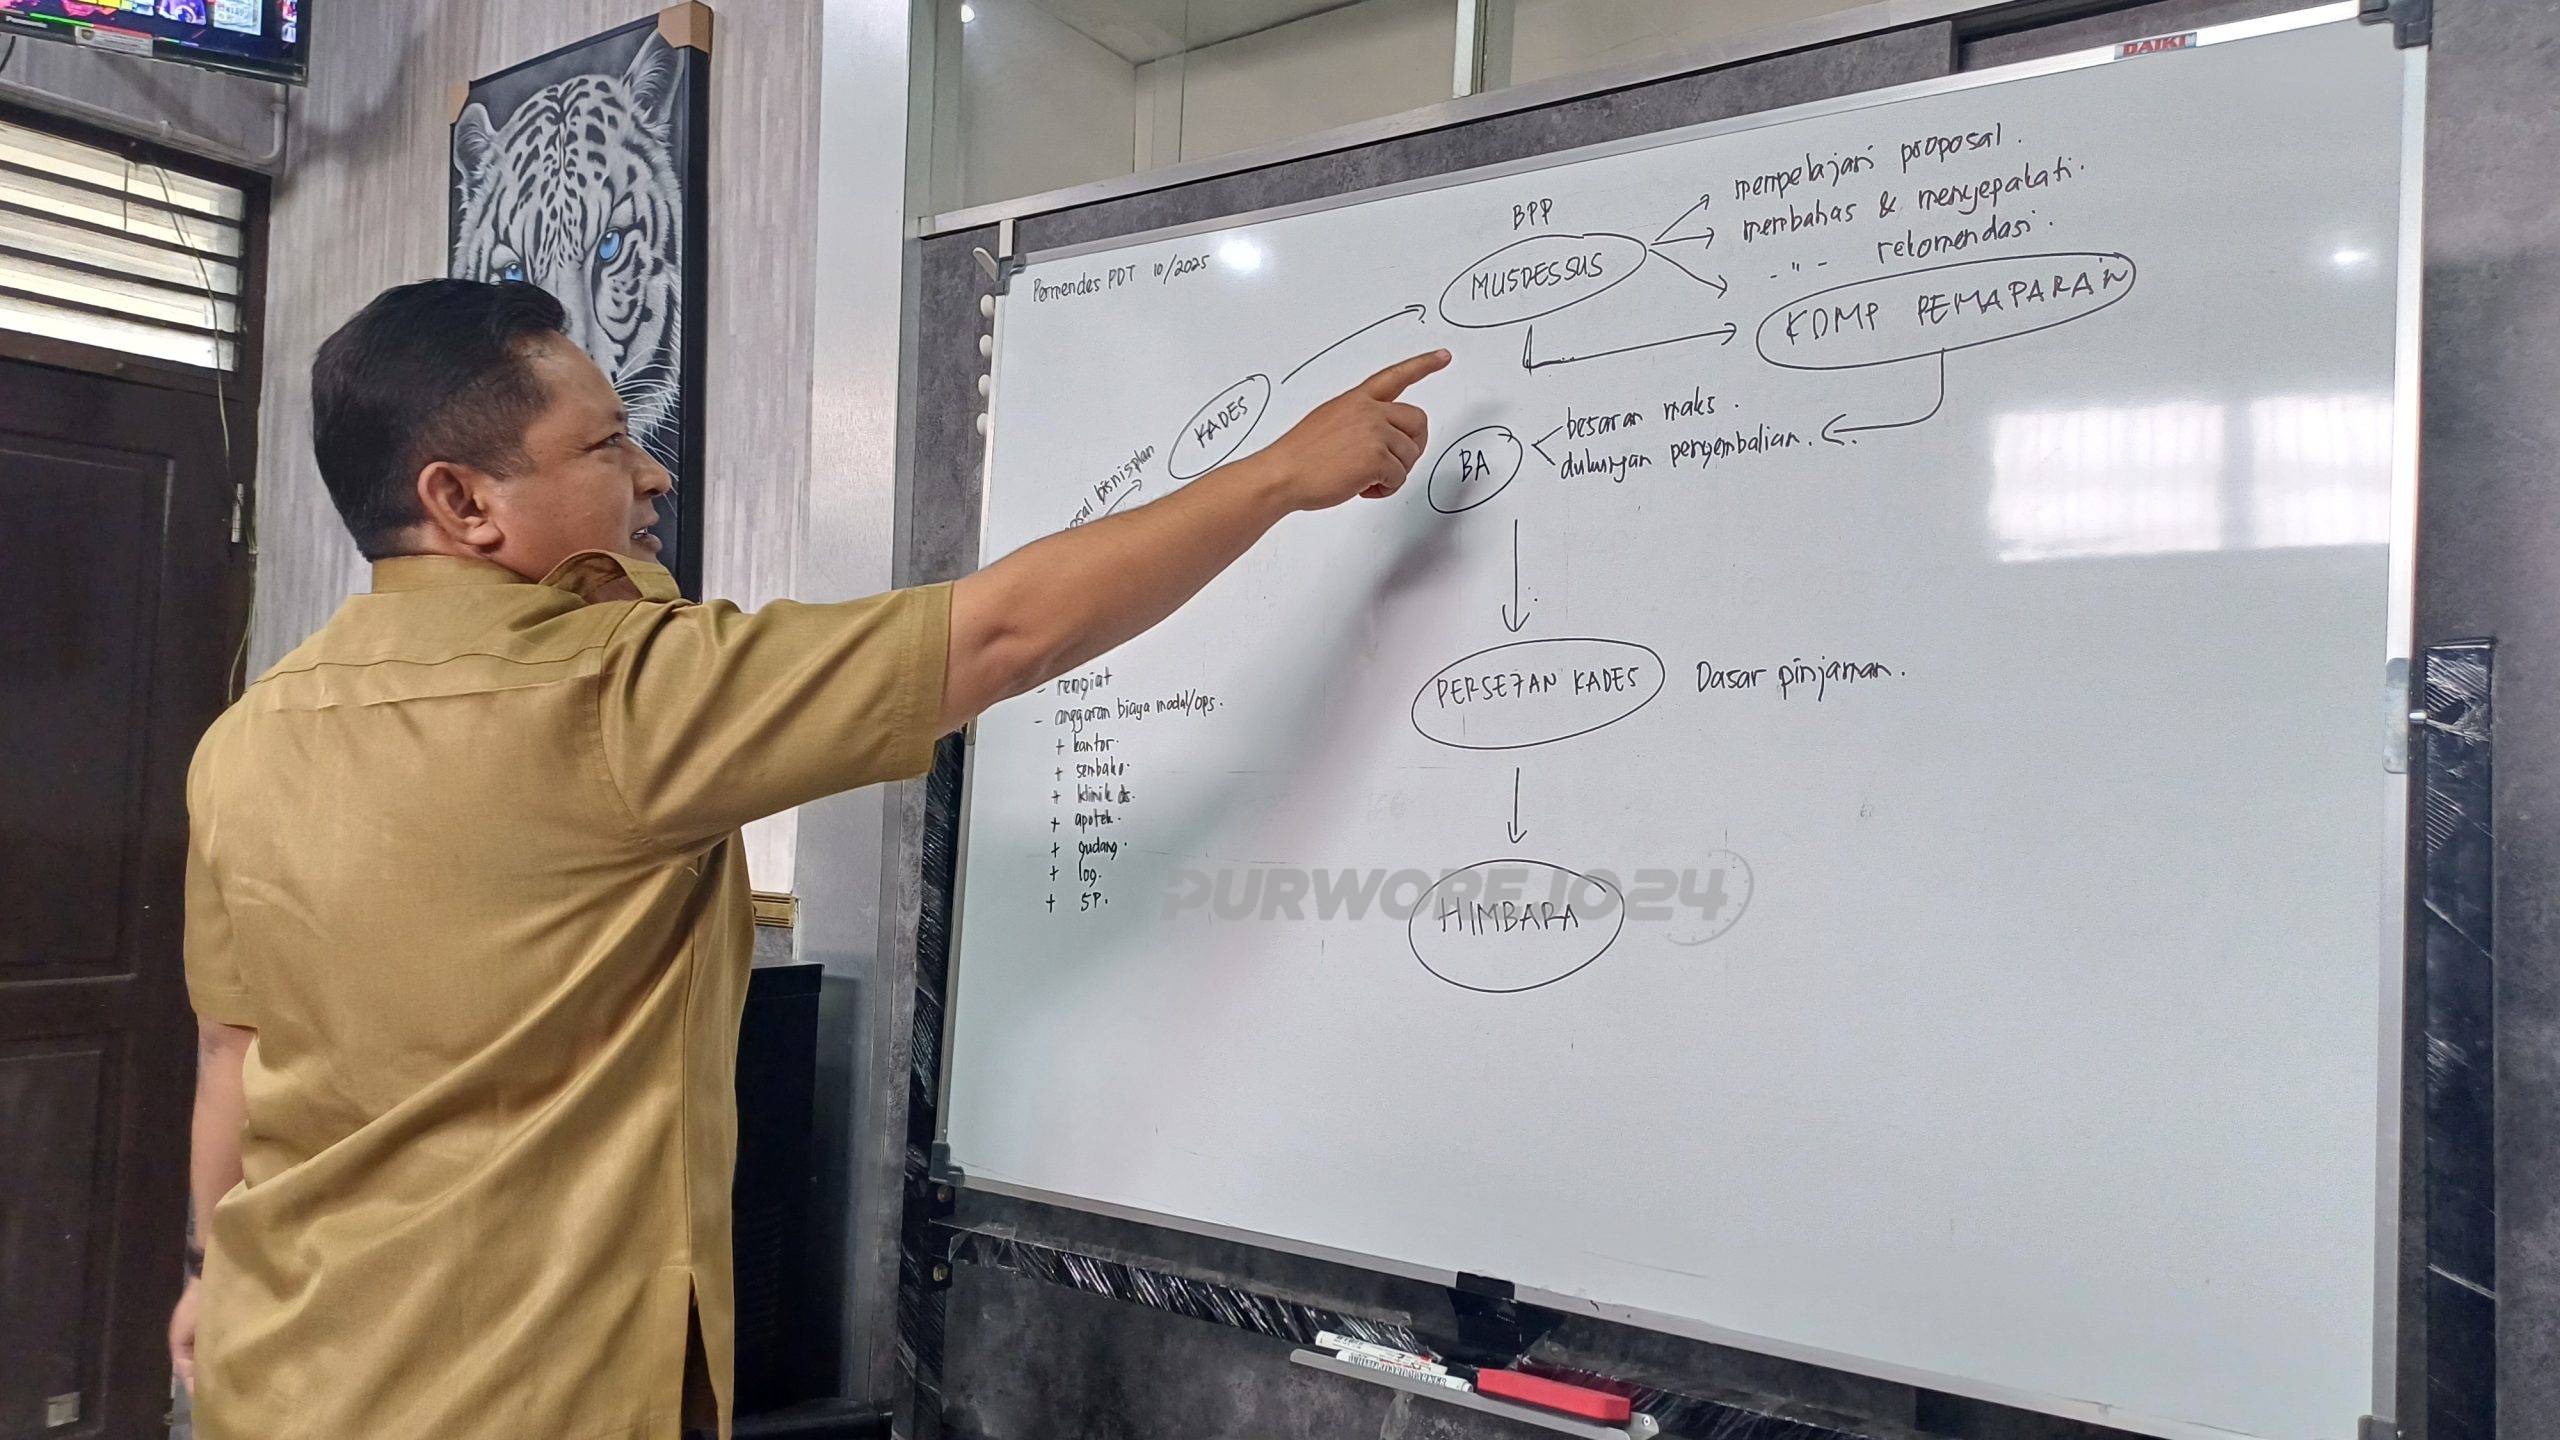 DAIKI
Permendes PDT 10/2025
BPP
MUSDESSUS
mempelajari proposal.
membahas & menyepakati.
- " - rekomendasi.
KDMP PEMAPARAN
KADES
bisnisplan
BA
besaran maks.
dukungan pengembalian.
PERSE7AN KADES
Dasar pinjaman.
HIMBARA
- rengiat
- anggaran biaya modal/ops.
+ kantor.
+ sembako.
+ klinik ds.
+ apotek.
+ gudang.
+ log.
+ SP.
PURWOREJO24